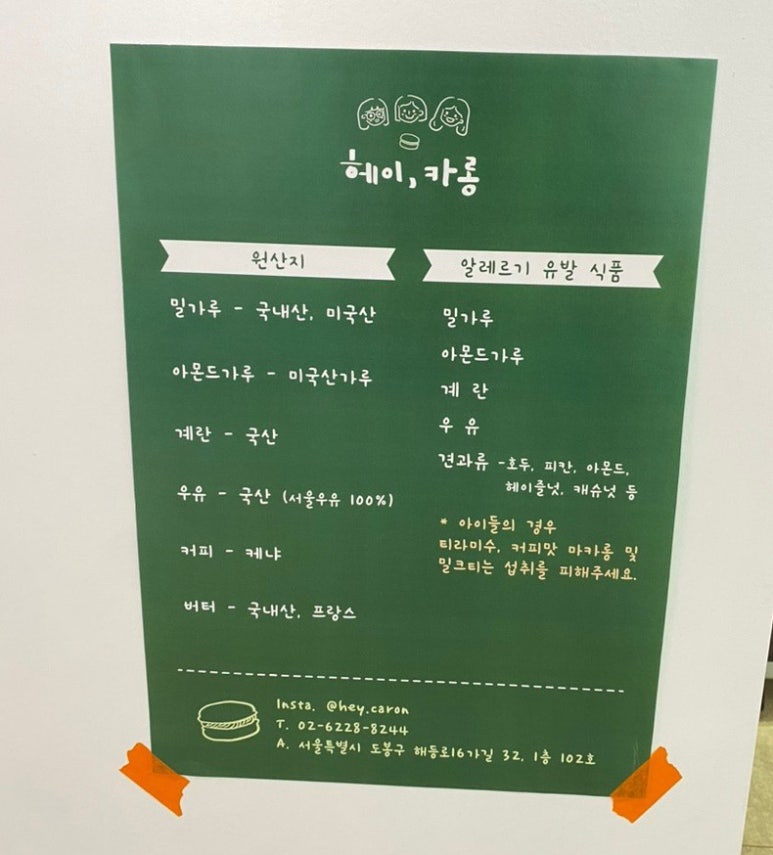 헤이, 카롱
원산지
밀가루 - 국내산, 미국산
아몬드가루 - 미국산가루
계란 - 국산
우유 - 국산 (서울우유 100%)
커피 - 케냐
버터 - 국내산, 프랑스
알레르기 유발 식품
밀가루
아몬드가루
계 란
우 유
견과류 -호두, 피칸, 아몬드,
헤이즐넛, 캐슈넛 등
* 아이들의 경우
티라미수, 커피맛 마카롱 및
밀크티는 섭취를 피해주세요.
Insta. @hey.caron
T. 02-6228-8244
A. 서울특별시 도봉구 해등로16가길 32, 1층 102호